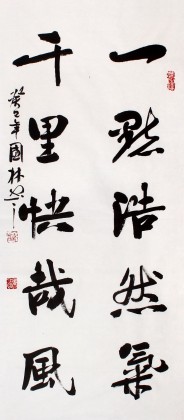 一點浩然氣
千里快哉風
癸巳年國林書